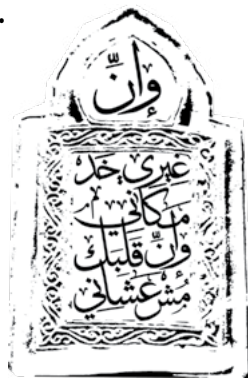 وإنّ
غيري خد
مكاني
وإنّ قلبك
مش عشاني